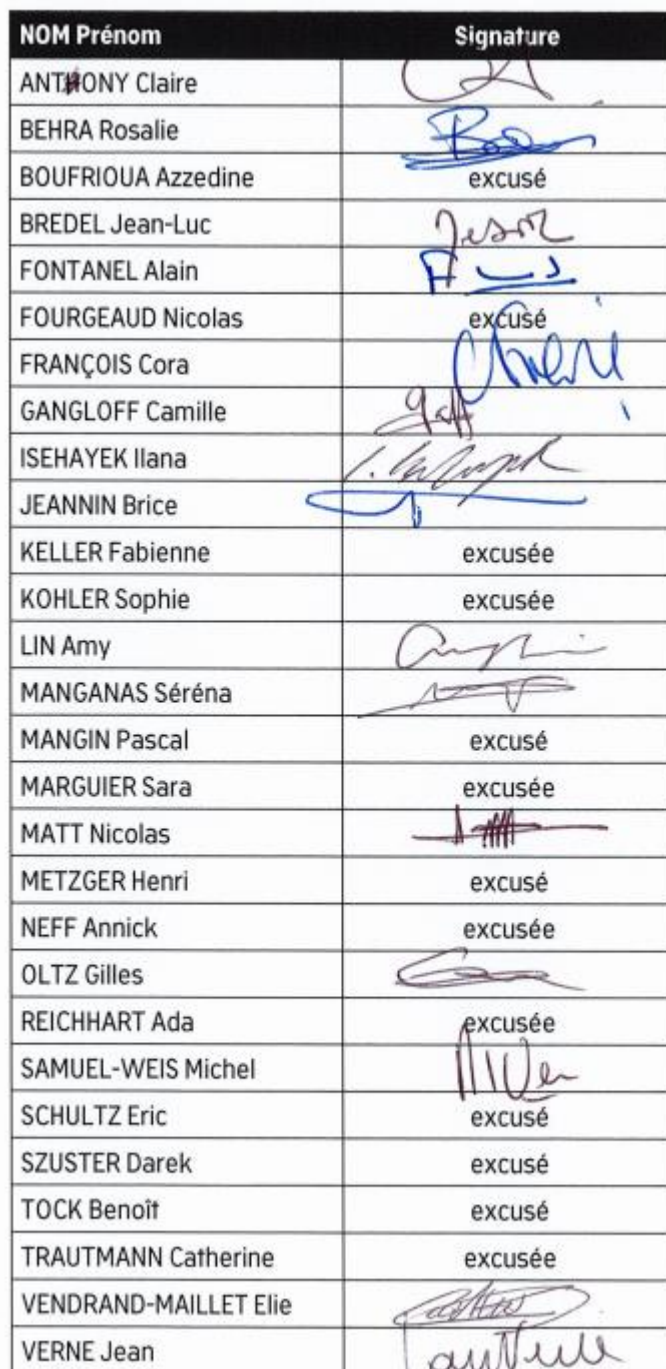 NOM Prénom Signature
ANTHONY Claire
BEHRA Rosalie
BOUFRIOUA Azzedine excusé
BREDEL Jean-Luc
FONTANEL Alain
FOURGEAUD Nicolas excusé
FRANÇOIS Cora
GANGLOFF Camille
ISEHAYEK Ilana
JEANNIN Brice
KELLER Fabienne excusée
KOHLER Sophie excusée
LIN Amy
MANGANAS Séréna
MANGIN Pascal excusé
MARGUIER Sara excusée
MATT Nicolas
METZGER Henri excusé
NEFF Annick excusée
OLTZ Gilles
REICHHART Ada excusée
SAMUEL-WEIS Michel
SCHULTZ Eric excusé
SZUSTER Darek excusé
TOCK Benoît excusé
TRAUTMANN Catherine excusée
VENDRAND-MAILLET Elie
VERNE Jean